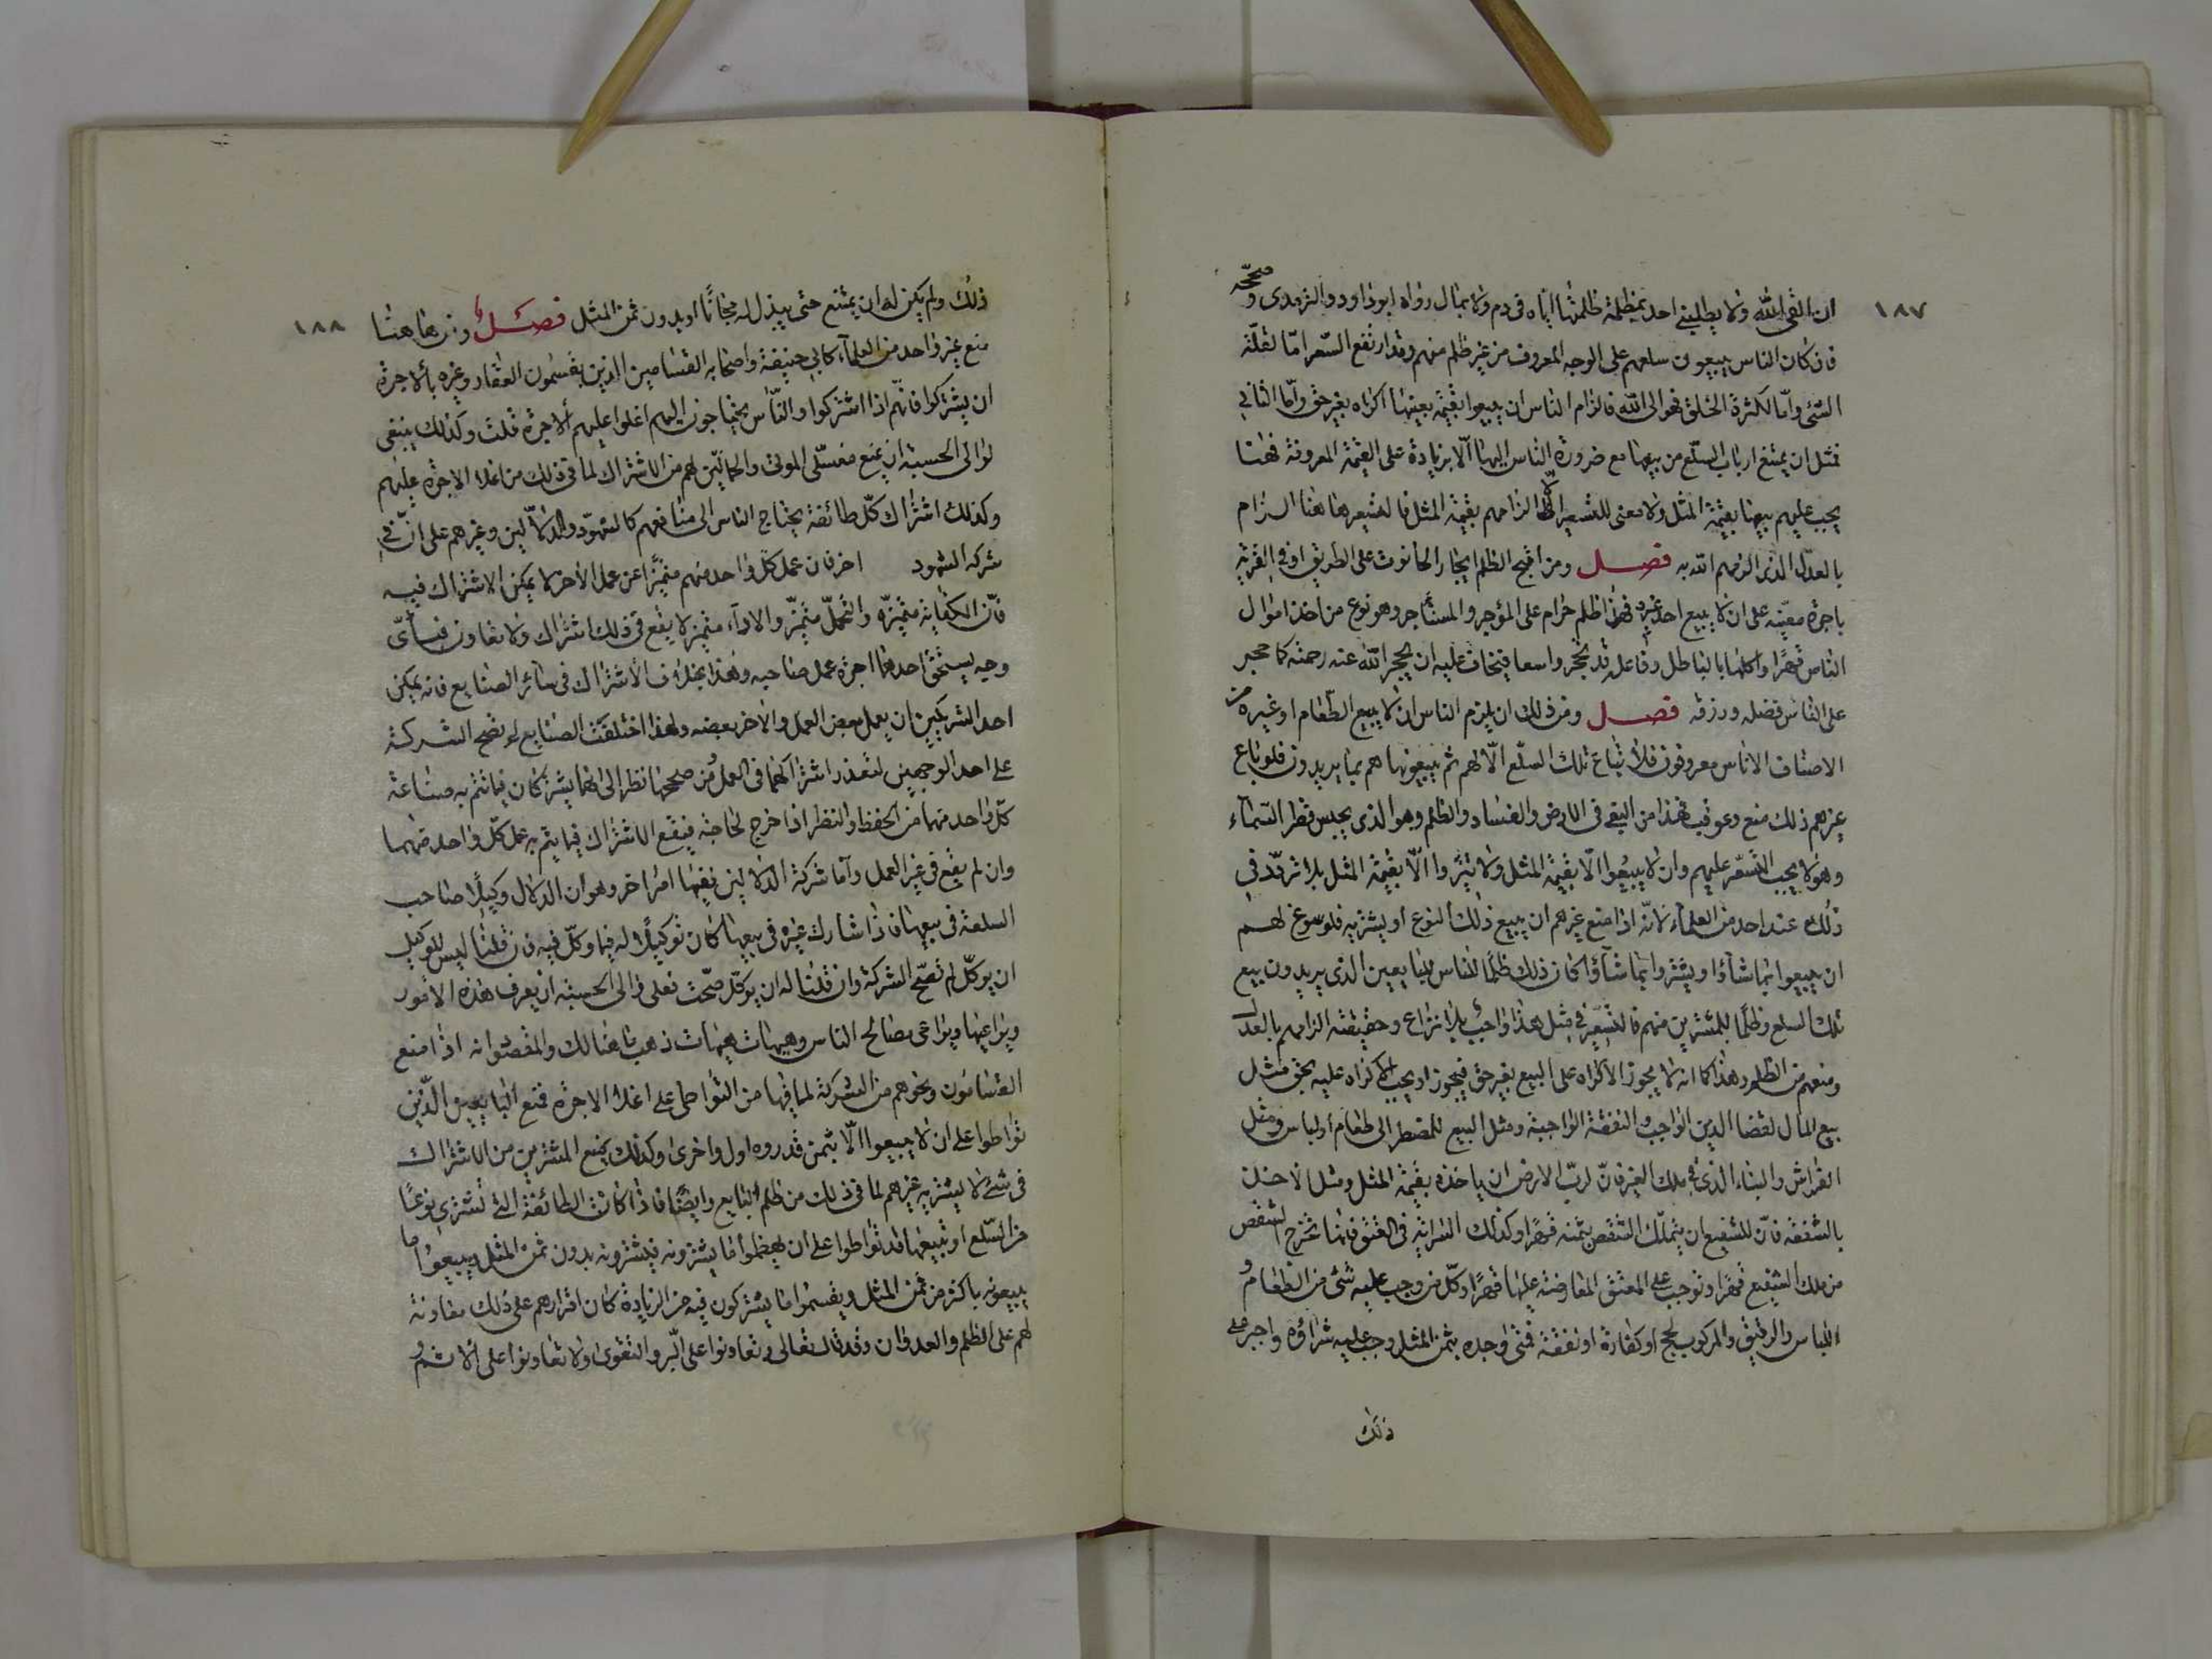 ١٨٧
ان القى الله ولا يطلبني احد بمظلمة ظلمتها اياه في دم ولا مال رواه ابو داود والترمذي وصححه
فاذا كان الناس يبيعون سلعهم على الوجه المعروف من غير ظلم منهم وقد ارتفع السعر اما لقلة
الشئ واما لكثرة الخلق فهو الى الله فالزام الناس ان يبيعوا بقيمة بعينها اكراه بغير حق واما الثاني
فمثل ان يمتنع ارباب السلع من بيعها مع ضرورة الناس اليها الا بزيادة على القيمة المعروفة فهنا
يجب عليهم بيعها بقيمة المثل ولا معنى للتسعير الا الزامهم بقيمة المثل فالتسعير هاهنا الزام
بالعدل الذي الزمهم الله به فصل ومن اقبح الظلم ايجار الحانوت على الطريق او في القرية
باجرة معينة على ان لا يبيع احد غيره فهذا ظلم حرام على المؤجر والمستأجر وهو نوع من اخذ اموال
الناس قهرا واكلها بالباطل وفاعله قد تحجر واسعا فيخاف عليه ان يحجر الله عنه رحمته كما حجر
على الناس فضله ورزقه فصل ومن ذلك ان يلزم الناس ان لا يبيع الطعام او غيره من
الاصناف الا ناس معروفون فلا تباع تلك السلع الا لهم ثم يبيعونها هم بما يريدون فلو باع
غيرهم ذلك منع وعوقب فهذا من البغي في الارض والفساد والظلم وهو الذي يحبس قطر السماء
وهؤلا يجب التسعير عليهم وان لا يبيعوا الا بقيمة المثل ولا يشتروا الا بقيمة المثل بلا تردد في
ذلك عند احد من العلماء لانه اذا منع غيرهم ان يبيع ذلك النوع او يشتريه فلو سوغ لهم
ان يبيعوا بما شاؤا او يشتروا بما شاؤا كان ذلك ظلما للناس للبايعين الذي يريدون بيع
تلك السلع وظلما للمشترين منهم فالتسعير في مثل هذا واجب بلا نزاع وحقيقته الزامهم بالعدل
ومنعهم من الظلم وهذا كما انه لا يجوز الاكراه على البيع بغير حق فيجوز او يجب الاكراه عليه بحق مثل
بيع المال لقضا الدين الواجب والنفقة الواجبة ومثل البيع للمضطر الى طعام او لباس ومثل
الغراس والبناء الذي في ملك الغير فان لرب الارض ان ياخذه بقيمة المثل ومثل الاخذ
بالشفعة فان للشفيع ان يتملك الشقص بثمنه قهرا وكذلك السراية في العتق فانها تخرج الشقص
من ملك الشفيع قهرا وتوجب على المعتق المعاوضة عليها قهرا وكل من وجب عليه شئ من الطعام و
اللباس والرقيق والمركوب لحج او كفارة او نفقة فمتى وجده بثمن المثل وجب عليه شراؤه واجبر على
ذلك
١٨٨
ذلك ولم يكن له ان يمتنع حتى يبذل له مجانا او بدون ثمن المثل فصل ومن هاهنا
منع غير واحد من العلماء كابي حنيفة واصحابه القسامين الذين يقسمون العقار وغيره بالاجرة
ان يشتركوا فانهم اذا اشتركوا والناس يحتاجون اليهم اغلوا عليهم الاجرة قلت وكذلك ينبغي
لوالي الحسبة ان يمنع مغسلي الموتى والحمالين لهم من الاشتراك لما في ذلك من اغلاء الاجرة عليهم
وكذلك اشتراك كل طائفة يحتاج الناس الى منافعهم كالشهود والدلالين وغيرهم على ان في
شركة الشهود اخر فان عمل كل واحد منهم متميزا عن عمل الاخر لا يمكن الاشتراك فيه
فان الكتابة متميزة والتحمل متميز والاداء متميز لا يقع في ذلك اشتراك ولا تعاون فبأي
وجه يستحق احدهما اجرة عمل صاحبه وهذا بخلاف الاشتراك في سائر الصنايع فانه يمكن
احد الشريكين ان يعمل بعض العمل والاخر بعضه ولهذا اختلفت الصنايع لم تصح الشركة
على احد الوجهين لتعذر اشتراكهما في العمل ومن صححها نظر الى انهما يشتركان فيما تتم به صناعة
كل واحد منهما من الحفظ والنظر اذا خرج لحاجته فيقع الاشتراك فيما يتم به عمل كل واحد منهما
وان لم يقع في غير العمل واما شركة الدلالين ففيها امر اخر وهو ان الدلال وكيل صاحب
السلعة في بيعها فاذا شارك غيره في بيعها كان توكيلا له فيما وكل فيه فان قلنا ليس للوكيل
ان يوكل لم تصح الشركة وان قلنا له ان يوكل صحت فعلى والي الحسبة ان يعرف هذه الامور
ويراعيها ويراعي مصالح الناس وهيهات هيهات ذهب ما هنالك والمقصود انه اذا منع
القسامون ونحوهم من الشركة لما فيها من التواطى على اغلاء الاجرة فمنع البايعين الذين
تواطوا على ان لا يبيعوا الا بثمن قدروه اولى واحرى وكذلك يمنع المشترين من الاشتراك
في شئ لا يشتريه غيرهم لما في ذلك من ظلم البايع وايضا فاذا كانت الطائفة التي تشتري نوعا
من السلع او تبيعها قد تواطوا على ان يهضموا ما يشترونه فيشترونه بدون ثمن المثل ويبيعوا ما
يبيعونه باكثر من ثمن المثل ويقسموا ما يشتركون فيه من الزيادة كان اقرارهم على ذلك معاونة
لهم على الظلم والعدوان وقد قال تعالى وتعاونوا على البر والتقوى ولا تعاونوا على الاثم و